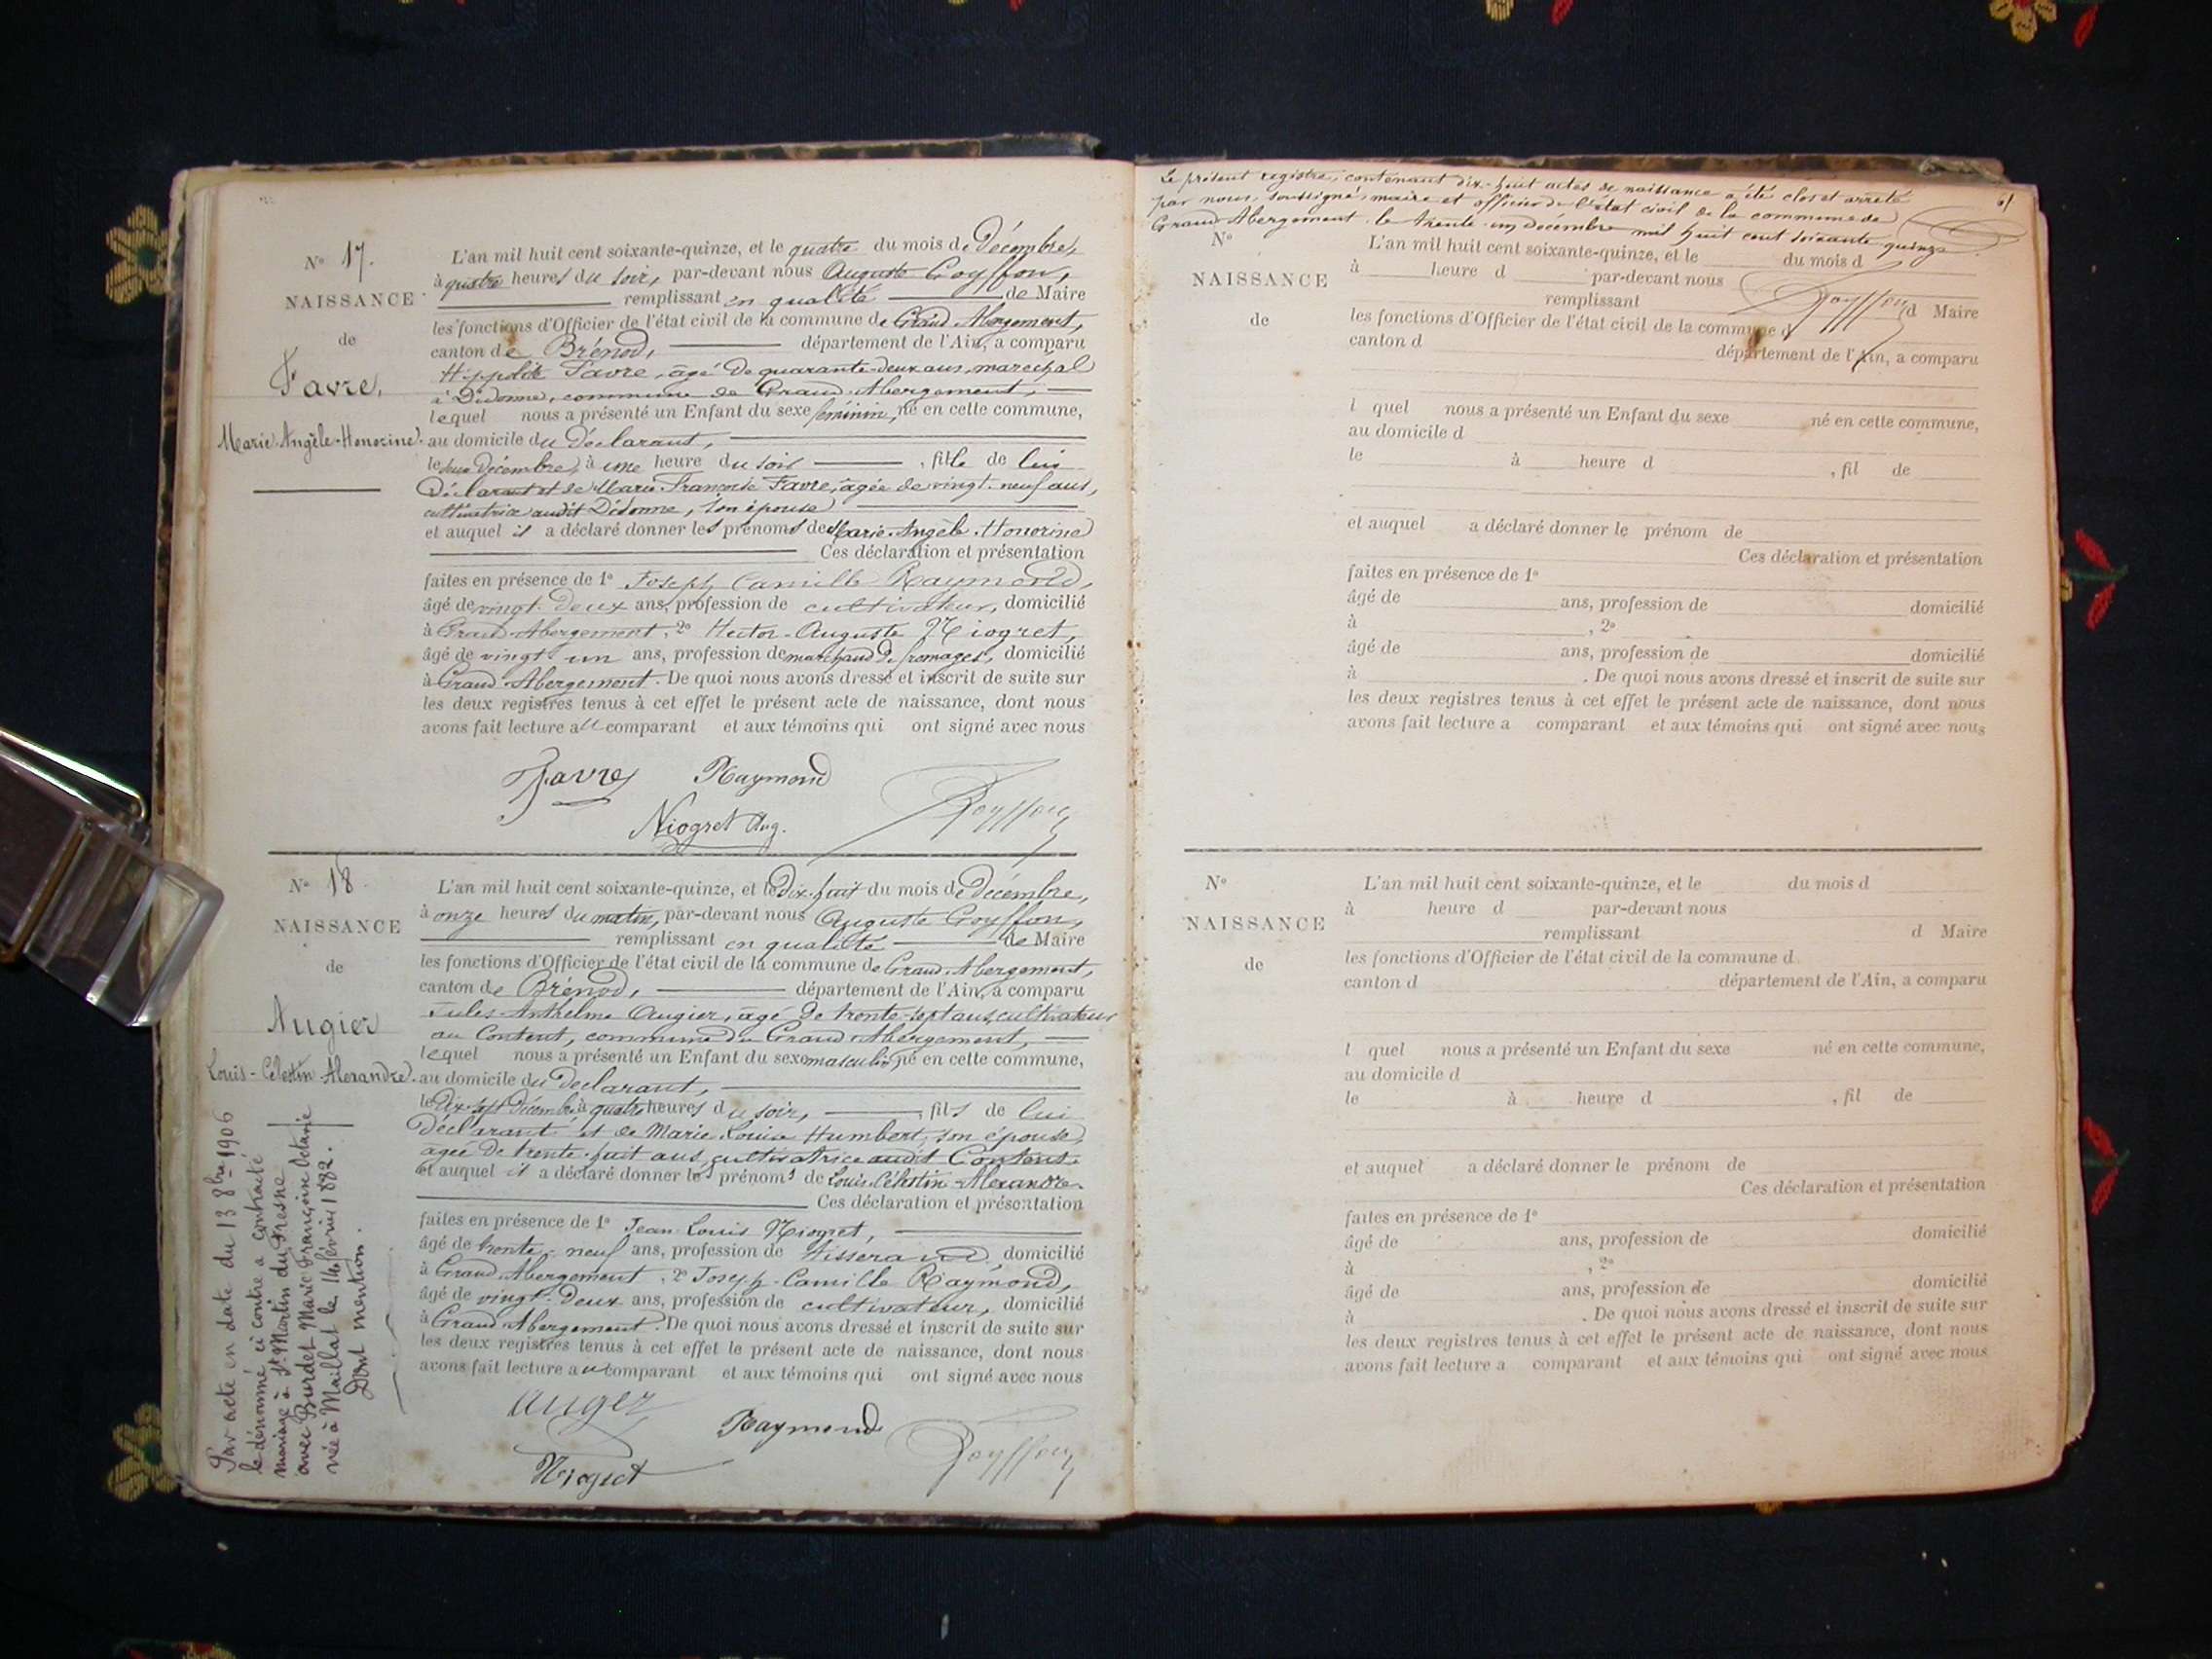 Nº 17.
NAISSANCE
de
Favre,
Marie-Angèle-Honorine.
L'an mil huit cent soixante-quinze, et le quatre du mois de Décembre,
à quatre heures du soir, par-devant nous Auguste Goyffon,
remplissant en qualité de Maire
les fonctions d'Officier de l'état civil de la commune de Grand-Abergement,
canton de Brénod, département de l'Ain, a comparu
Hippolite Favre, âgé de quarante-deux ans, maréchal
à Didonne, commune de Grand-Abergement,
lequel nous a présenté un Enfant du sexe féminin, né en cette commune,
au domicile du Déclarant,
le Décembre, à une heure du soir, fille de lui
Déclarant et de Marie Françoise Favre, âgée de vingt-neuf ans,
cultivatrice audit Didonne, son épouse
et auquel il a déclaré donner les prénoms de Marie-Angèle-Honorine
Ces déclaration et présentation
faites en présence de 1º Joseph Camille Raymond,
âgé de vingt-deux ans, profession de cultivateur, domicilié
à Grand-Abergement, 2º Hector-Auguste Niogret,
âgé de vingt-un ans, profession de marchand de fromages, domicilié
à Grand-Abergement. De quoi nous avons dressé et inscrit de suite sur
les deux registres tenus à cet effet le présent acte de naissance, dont nous
avons fait lecture au comparant et aux témoins qui ont signé avec nous
Favre Raymond
Niogret Aug. Goyffon
Nº 18.
NAISSANCE
de
Augier
Louis-Célestin-Alexandre.
L'an mil huit cent soixante-quinze, et le Dix-huit du mois de Décembre,
à onze heures du matin, par-devant nous Auguste Goyffon,
remplissant en qualité de Maire
les fonctions d'Officier de l'état civil de la commune de Grand-Abergement,
canton de Brénod, département de l'Ain, a comparu
Jules-Anthelme Augier, âgé de trente-sept ans, cultivateur
au Content, commune du Grand-Abergement,
lequel nous a présenté un Enfant du sexe masculin, né en cette commune,
au domicile du Déclarant,
le Dix-sept Décembre à quatre heures du soir, fils de lui
Déclarant et de Marie-Louise Humbert, son épouse,
âgée de trente-huit ans, cultivatrice audit Content.
et auquel il a déclaré donner les prénoms de Louis-Célestin-Alexandre.
Ces déclaration et présentation
faites en présence de 1º Jean-Louis Niogret,
âgé de trente-neuf ans, profession de tisserand, domicilié
à Grand-Abergement, 2º Joseph-Camille Raymond,
âgé de vingt-deux ans, profession de cultivateur, domicilié
à Grand-Abergement. De quoi nous avons dressé et inscrit de suite sur
les deux registres tenus à cet effet le présent acte de naissance, dont nous
avons fait lecture au comparant et aux témoins qui ont signé avec nous
Raymond
Niogret Goyffon
Par acte en date du 13 8bre 1906
le dénommé ci contre a contracté
mariage à St Martin du Fresne
avec Burdet Marie Françoise Octavie
née à Maillat le 14 février 1882.
Dont mention.
Le présent registre, contenant dix-huit actes de naissance a été clos et arrêté
par nous, soussigné, maire et officier de l'état civil de la commune de
Grand-Abergement le trente-un décembre mil huit cent soixante quinze
Goyffon
61
Nº
NAISSANCE
de
L'an mil huit cent soixante-quinze, et le du mois d
à heure d par-devant nous
remplissant d Maire
les fonctions d'Officier de l'état civil de la commune d
canton d département de l'Ain, a comparu
l quel nous a présenté un Enfant du sexe né en cette commune,
au domicile d
le à heure d , fil de
et auquel a déclaré donner le prénom de
Ces déclaration et présentation
faites en présence de 1º
âgé de ans, profession de domicilié
à , 2º
âgé de ans, profession de domicilié
à . De quoi nous avons dressé et inscrit de suite sur
les deux registres tenus à cet effet le présent acte de naissance, dont nous
avons fait lecture a comparant et aux témoins qui ont signé avec nous
Nº
NAISSANCE
de
L'an mil huit cent soixante-quinze, et le du mois d
à heure d par-devant nous
remplissant d Maire
les fonctions d'Officier de l'état civil de la commune d
canton d département de l'Ain, a comparu
l quel nous a présenté un Enfant du sexe né en cette commune,
au domicile d
le à heure d , fil de
et auquel a déclaré donner le prénom de
Ces déclaration et présentation
faites en présence de 1º
âgé de ans, profession de domicilié
à , 2º
âgé de ans, profession de domicilié
à . De quoi nous avons dressé et inscrit de suite sur
les deux registres tenus à cet effet le présent acte de naissance, dont nous
avons fait lecture a comparant et aux témoins qui ont signé avec nous